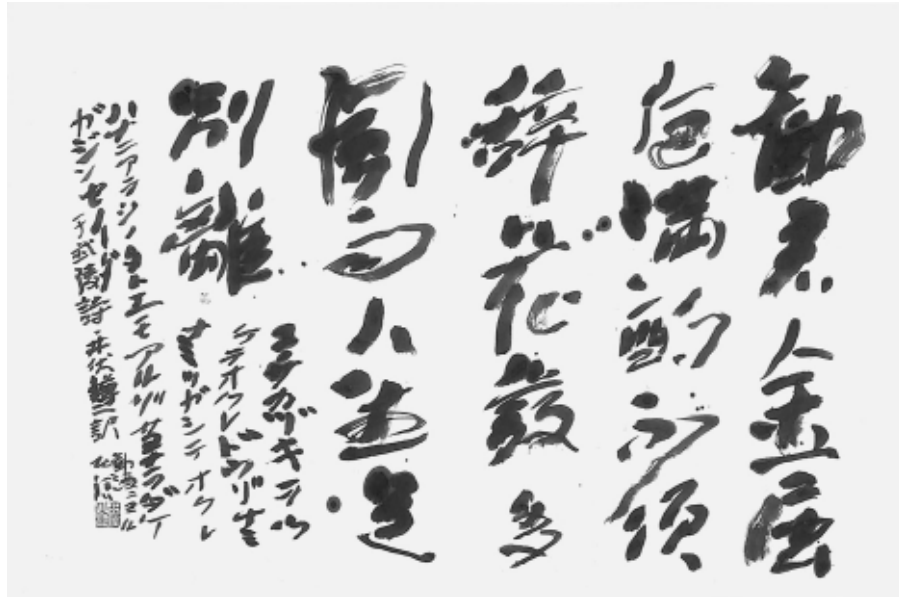 勧君金屈
卮満酌不須
辞花發多
風雨人生足
別離
コノサカヅキヲ
ウケテオクレドウゾナミ
ナミツガシテオクレ
ハナニアラシノタトエモアルゾサヨナラダケ
ガジンセイダ 于武陵詩 井伏鱒二訳